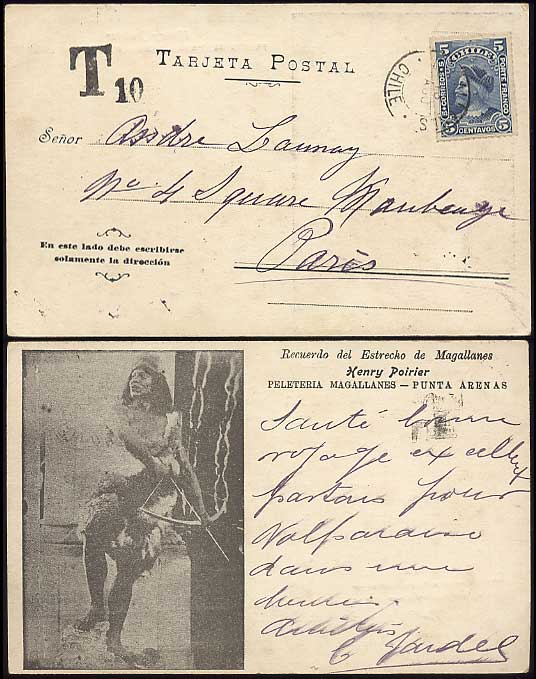 T 10
TARJETA POSTAL
5 CHILE 5
CORREOS
PORTE FRANCO
5 CENTAVOS 5
CHILE
Señor Launay
No 4 Square Maubeuge
Paris
En este lado debe escribirse
solamente la dirección
Recuerdo del Estrecho de Magallanes
Henry Poirier
PELETERIA MAGALLANES — PUNTA ARENAS
Santé bonne
voyage excellent
partons pour
Valparaiso
dans une
heure